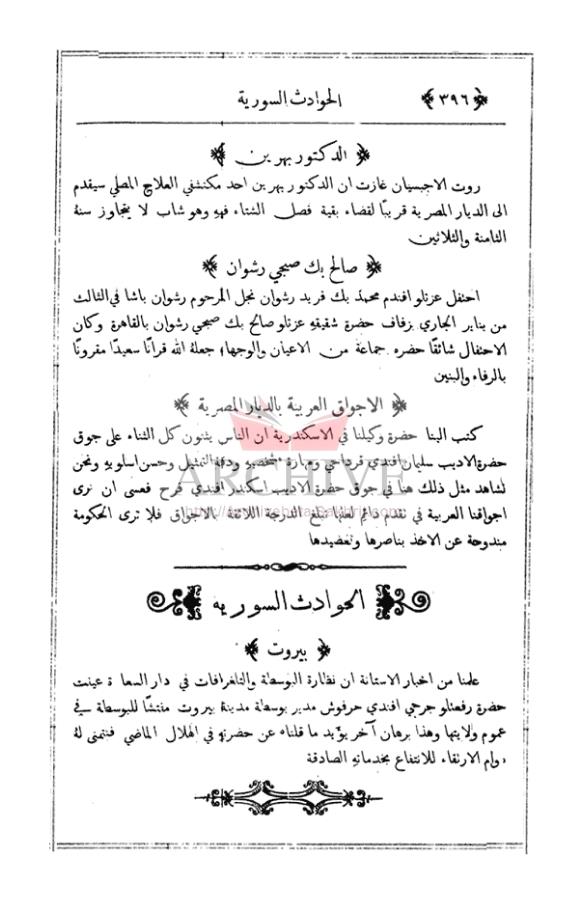 ﴿٣٩٦﴾ الحوادث السورية
﴿ الدكتور بهرين ﴾
روت الاجبسيان غازت ان الدكتور بهرين احد مكتشفي العلاج المصلي سيقدم
الى الديار المصرية قريبًا لقضاء بقية فصل الشتاء فيها وهو شاب لا يتجاوز سنه
الثامنة والثلاثين
﴿ صالح بك صبحي رشوان ﴾
احتفل عزتلو افندم محمد بك فريد رشوان نجل المرحوم رشوان باشا في الثالث
من يناير الجاري بزفاف حضرة شقيقه عزتلو صالح بك صبحي رشوان بالقاهرة وكان
الاحتفال شائقًا حضره جماعة من الاعيان والوجهاء جعله الله قرانًا سعيدًا مقرونًا
بالرفاء والبنين
﴿ الاجواق العربية بالديار المصرية ﴾
كتب الينا حضرة وكيلنا في الاسكندرية ان الناس يثنون كل الثناء على جوق
حضرة الاديب سليمان افندي قرداحي ومهارة مشخصيه ودقة التمثيل وحسن اسلوبه ونحن
نشاهد مثل ذلك هنا في جوق حضرة الاديب اسكندر افندي فرح فعسى ان نرى
اجواقنا العربية في تقدم دائم لعلها تبلغ الدرجة اللائقة بالاجواق فلا ترى الحكومة
مندوحة عن الاخذ بناصرها وتعضيدها
ARCHIVE
الحوادث السورية
﴿ بيروت ﴾
علمنا من اخبار الاستانة ان نظارة البوسطة والتلغرافات في دار السعا ة عينت
حضرة رفعتلو جرجي افندي حرفوش مدير بوسطة مدينة بيروت مفتشًا للبوسطة في
عموم ولايتها وهذا برهان آخر يؤيد ما قلناه عن حضرته في الهلال الماضي فنتمنى له
دوام الارتقاء للانتفاع بخدماته الصادقة